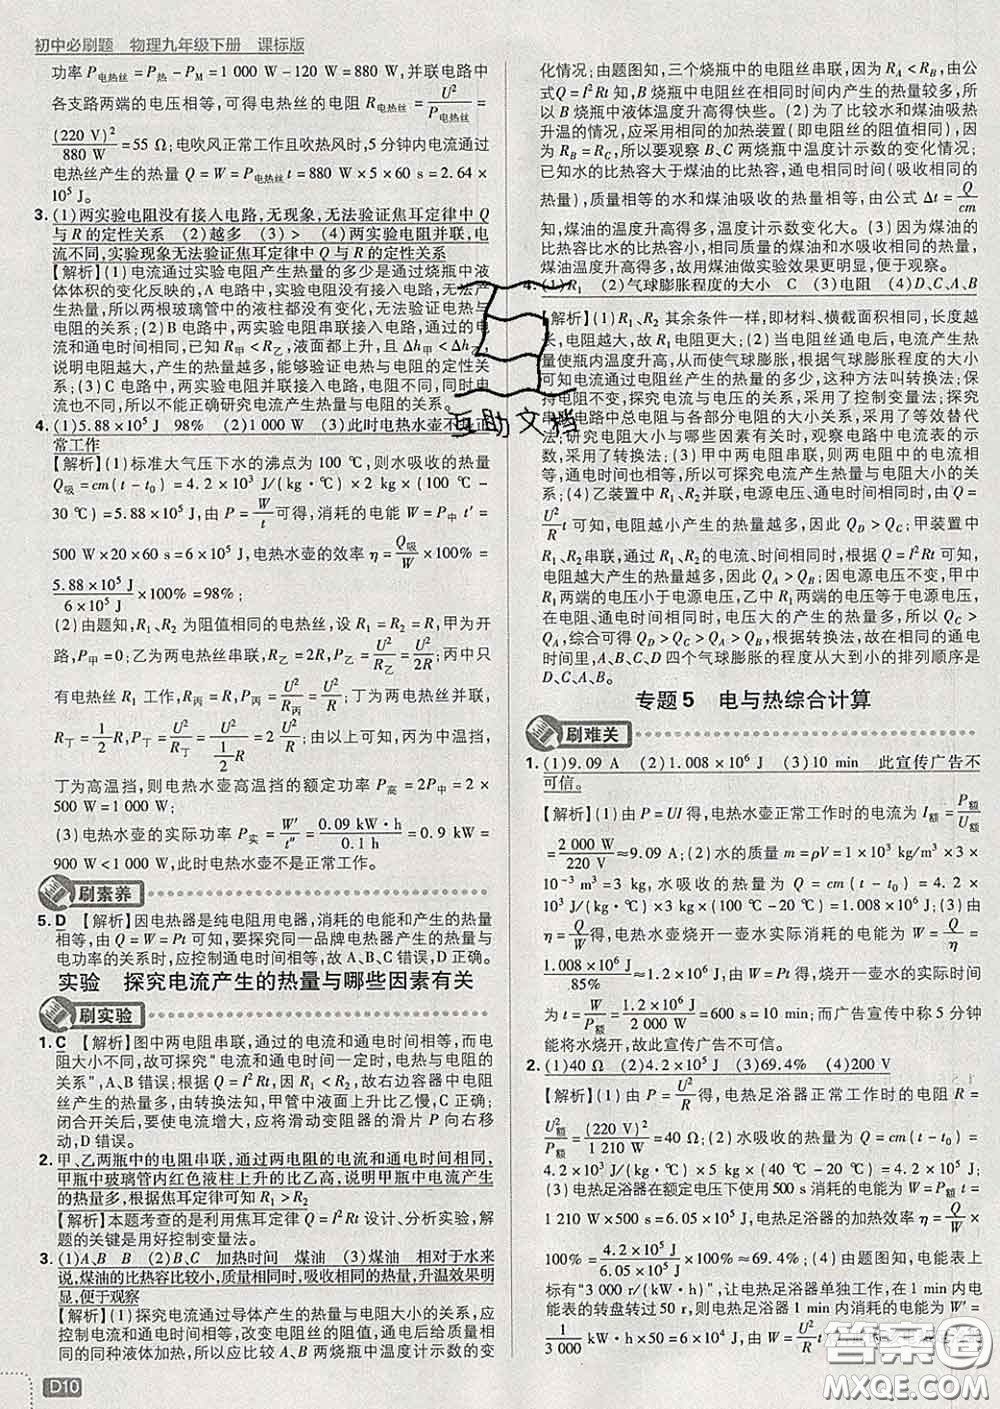 初中必刷题 物理九年级下册 课标版
功率 P电热丝 = P热 - PM = 1 000 W - 120 W = 880 W, 并联电路中
各支路两端的电压相等, 可得电热丝的电阻 R电热丝 = U²/P电热丝 =
(220 V)²/880 W = 55 Ω; 电吹风正常工作且吹热风时, 5 分钟内电流通过
电热丝产生的热量 Q = W = P电热丝 t = 880 W×5×60 s = 2.64×
10⁵ J。
3. (1)两实验电阻没有接入电路,无现象,无法验证焦耳定律中 Q
与 R 的定性关系 (2)越多 (3)> (4)两实验电阻并联,电
流不同,实验现象无法验证焦耳定律中 Q 与 R 的定性关系
【解析】(1)电流通过实验电阻产生热量的多少是通过烧瓶中液
体体积的变化反映的, A 电路中, 实验电阻没有接入电路, 无法产
生热量, 所以两根玻璃管中的液柱都没有变化, 无法验证电热与
电阻的关系; (2) B 电路中, 两实验电阻串联接入电路, 通过的电
流和通电时间相同, 已知 R甲 < R乙, 液面都上升, 且 Δh甲 < Δh乙,
说明电阻越大, 产生的热量越多, 能够验证电热与电阻的定性关
系; (3) C 电路中, 两实验电阻并联接入电路, 电阻不同, 同时电
流也不同, 所以不能正确研究电流产生热量与电阻的关系。
4. (1)5.88×10⁵ J 98% (2)1 000 W (3)此时电热水壶不是正
常工作
【解析】(1)标准大气压下水的沸点为 100 ℃, 则水吸收的热量
Q吸 = cm(t - t₀) = 4.2×10³ J/(kg·℃)×2 kg×(100 ℃ -
30 ℃) = 5.88×10⁵ J, 由 P = W/t 可得, 消耗的电能 W = P中 t′ =
500 W×20×60 s = 6×10⁵ J, 电热水壶的效率 η = Q吸/W×100% =
5.88×10⁵ J/6×10⁵ J×100% = 98%;
(2)由题知, R₁、R₂ 为阻值相同的电热丝, 设 R₁ = R₂ = R, 甲为开
路, P甲 = 0; 乙为两电热丝串联, R乙 = 2R, P乙 = U²/R乙 = U²/2R; 丙中只
有电热丝 R₁ 工作, R丙 = R, P丙 = U²/R丙 = U²/R; 丁为两电热丝并联,
R丁 = 1/2 R, P丁 = U²/R丁 = U²/(1/2 R) = 2 U²/R, 所以, 丙为中温挡,
丁为高温挡; 电热水壶高温挡的额定功率 P高 = 2P中 = 2×
500 W = 1 000 W;
(3)电热水壶的实际功率 P实 = W′/t″ = 0.09 kW·h/0.1 h = 0.9 kW =
900 W < 1 000 W, 此时电热水壶不是正常工作。
刷素养
5. D 【解析】因电热器是纯电阻用电器, 消耗的电能和产生的热量
相等, 由 Q = W = Pt 可知, 要探究同一品牌电热器产生的热量与
电功率的关系, 应控制通电时间相等, 故 A、B、C 错误, D 正确。
实验 探究电流产生的热量与哪些因素有关
刷实验
1. C 【解析】图中两电阻串联, 通过的电流和通电时间相等, 而电
阻大小不同, 故可探究“电流和通电时间一定时, 电热与电阻的
关系”, A、B 错误; 因 R₁ < R₂, 根据 Q = I²Rt, 故右边容器中电阻
丝产生的热量多, 由转换法知, 甲管中液面上升比乙慢, C 正确;
闭合开关后, 要使电流增大, 应将滑动变阻器的滑片 P 向右移
动, D 错误。
2. 甲、乙两瓶中的电阻串联,通过两电阻的电流和通电时间相同,
甲瓶中玻璃管内红色液柱上升的比乙高,说明甲瓶中电流产生
的热量多,根据焦耳定律可知 R₁ > R₂
【解析】本题考查的是利用焦耳定律 Q = I²Rt 设计、分析实验, 解
题的关键是用好控制变量法。
3. (1)A、B B (2)B、C 加热时间 煤油 (3)煤油 相对于水来
说,煤油的比热容比较小,质量相同时,吸收相同的热量,升温效果明
显,便于观察
【解析】(1)探究电流通过导体产生的热量与电阻大小的关系, 应
控制电流和通电时间相等, 改变电阻丝的阻值, 通过质量相同
的同种液体加热, 所以应比较 A、B 两烧瓶中温度计示数的变
D10
化情况; 由题图知, 三个烧瓶中的电阻丝串联, 因为 RA < RB, 由公
式 Q = I²Rt 知, B 烧瓶中电阻丝在相同时间内产生的热量较多, 所
以 B 烧瓶中液体温度升高得快些。(2)为了比较水和煤油吸热
升温的情况, 应采用相同的加热装置(即电阻丝的阻值相同), 因
为 RB = RC, 所以要观察 B、C 两烧瓶中温度计示数的变化情况;
已知水的比热容大于煤油的比热容, 通电时间(吸收的热量)相
同时, 质量相等的水和煤油吸收的热量相等, 由公式 Δt = Q/cm
知, 煤油的温度升高得多, 温度计示数变化大。(3)因为煤油的
比热容比水的比热容小, 相同质量的煤油和水吸收相同的热量,
煤油温度升高得多, 故用煤油做实验效果更明显, 便于观察。
4. (1)R₁ (2)气球膨胀程度的大小 C (3)电阻 (4)D、C、A、B
【解析】(1) R₁、R₂ 其余条件一样, 即材料、横截面积相同, 长度越
长, 电阻越大, 故 R₁ 电阻更大; (2)当电阻丝通电后, 电流产生热
量使瓶内温度升高, 从而使气球膨胀, 根据气球膨胀程度的大小
可知电流通过电阻丝产生的热量的多少, 这种方法叫转换法; 保
持电阻不变, 探究电流与电压的关系, 采用了控制变量法; 探究
串联电路中总电阻与各部分电阻的大小关系, 采用了等效替代
法; 研究电阻大小与哪些因素有关时, 观察电路中电流表的示
数, 采用了转换法; (3)甲中两电阻丝串联, 通过电阻丝的电流相
等, 通电时间相等, 所以可探究电流产生热量与电阻大小的关
系; (4)乙装置中 R₁、R₂ 并联, 电源电压、通电时间相等, 由 Q =
U²/R t 可知, 电阻越小产生的热量越多, 因此 QD > QC; 甲装置中
R₁、R₂ 串联, 通过 R₁、R₂ 的电流、时间相同, 根据 Q = I²Rt 可知,
电阻越大产生的热量越多, 所以 QA > QB; 因电源电压不变, 甲中
R₁ 两端的电压小于电源电压, 乙中 R₁ 两端的电压等于电源电压,
在电阻、通电时间相同时, 电压大的产生的热量多, 所以 QC >
QA, 综合可得 QD > QC > QA > QB; 根据转换法, 故在相同的通电
时间里, A、B、C、D 四个气球膨胀的程度从大到小的排列顺序是
D、C、A、B。
专题 5 电与热综合计算
刷难关
1. (1)9.09 A (2)1.008×10⁶ J (3)10 min 此宣传广告不
可信。
【解析】(1)由 P = UI 得, 电热水壶正常工作时的电流为 I额 = P额/U额
= 2 000 W/220 V ≈ 9.09 A; (2)水的质量 m = ρV = 1×10³ kg/m³×3×
10⁻³ m³ = 3 kg, 水吸收的热量 Q = cm(t - t₀) = 4.2×10³
J/(kg·℃)×3 kg×(100 ℃ - 20 ℃) = 1.008×10⁶ J; (3)由
η = Q/W 得, 电热水壶烧开一壶水实际消耗的电能为 W = Q/η =
1.008×10⁶ J/85% ≈ 1.2×10⁶ J, 由 P = W/t 得, 烧开一壶水的时间 t =
W/P额 = 1.2×10⁶ J/2 000 W = 600 s = 10 min; 而广告宣传中称 5 分钟
能将水烧开, 故此宣传广告不可信。
2. (1)40 Ω (2)4.2×10⁵ J (3)69.4% (4)200 V
【解析】(1)由 P = U²/R 得, 电热足浴器正常工作时的电阻 R =
U额²/P额 = (220 V)²/1 210 W = 40 Ω; (2)水吸收的热量为 Q = cm(t - t₀) =
(3)电热足浴器在额定电压下使用 500 s 消耗的电能为 W = P额 t =
1 210 W×500 s = 6.05×10⁵ J, 电热足浴器的加热效率 η = Q/W×
100% = 4.2×10⁵ J/6.05×10⁵ J×100% ≈ 69.4%; (4)由题图知, 电能表上
标有“3 000 r/(kW·h)”, 让电热足浴器单独工作, 在 1 min 内电
能表的转盘转过 50 r, 则电热足浴器 1 min 内消耗的电能为 W′ =
1/3 000 kW·h×50 = 6×10⁴ J, 由 W = U²/R t
互助文档
答案圈
MXQE.COM